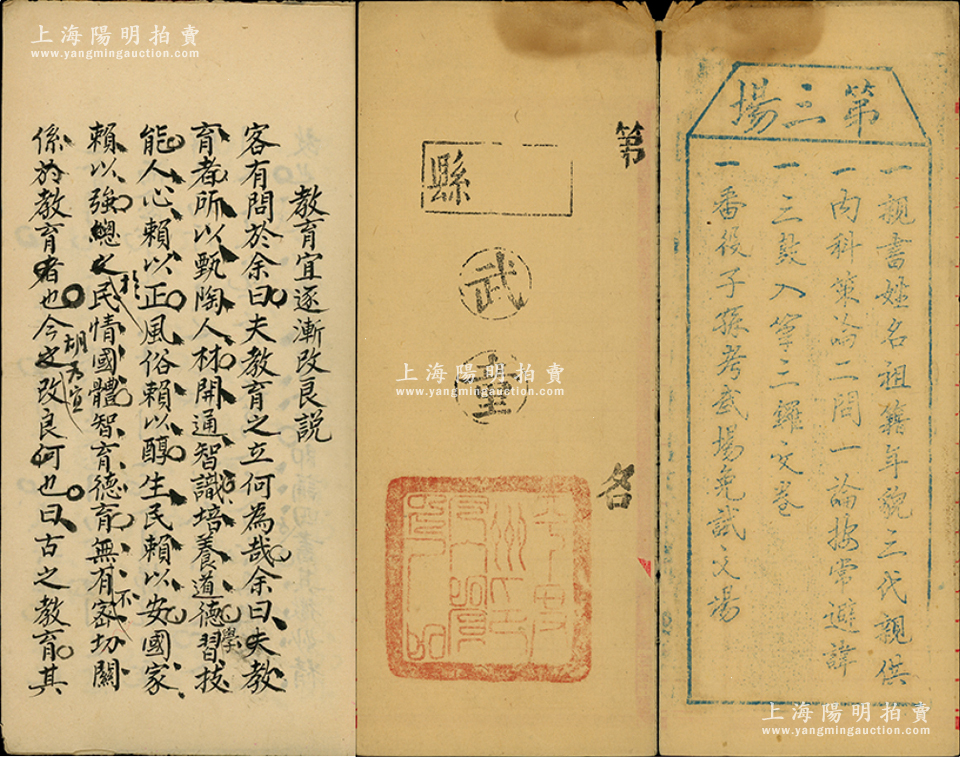 上海陽明拍賣
www.yangmingauction.com
教育宜逐漸改良説
客有問於余曰夫教育之立何為哉余曰夫教
育者所以甄陶人材開通智識培養道德習技
學
能人心賴以正風俗賴以醇生民賴以安國家
賴以強總之民情國體智育德育無有密切關
於
不
係於教育者也今之改良何也曰古之教育其
第
名
縣
武
童
上海陽明拍賣
www.yangmingauction.com
第三場
一親書姓名祖籍年貌三代親供
一內科策論二問一論按常避諱
一三鼓入筆三鑼交卷
一番役子孫考武場免試文場
上海陽明拍賣
www.yangmingauction.com